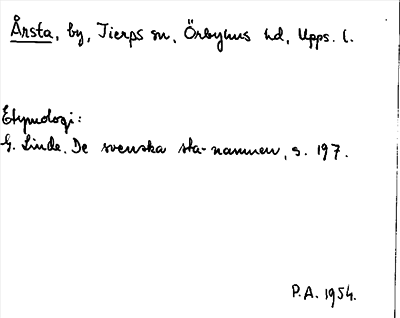 Årsta, by, Tierps sn, Örbyhus hd, Upps. l.
Etymologi:
G. Linde. De svenska sta-namnen, s. 197.
P.A. 1954.